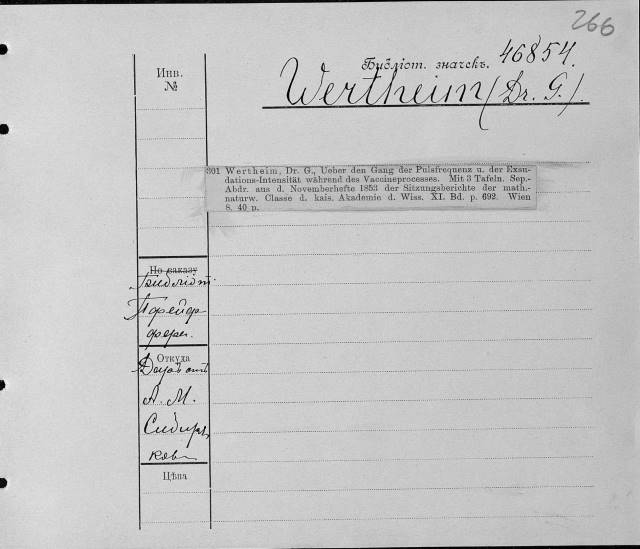 266
Библіот. значекъ. 46854.
Wertheim (Dr. G.).
Инв.
№
801 Wertheim, Dr. G., Ueber den Gang der Pulsfrequenz u. der Exsu-
dations-Intensität während des Vaccineprocesses. Mit 3 Tafeln. Sep.-
Abdr. aus d. Novemberhefte 1853 der Sitzungsberichte der math.-
naturw. Classe d. kais. Akademie d. Wiss. XI. Bd. p. 692. Wien
8. 40 p.
По заказу
Библіот.
Пфейф
фера.
Откуда
Даръ отъ
А. М.
Сибиря
кова
Цѣна